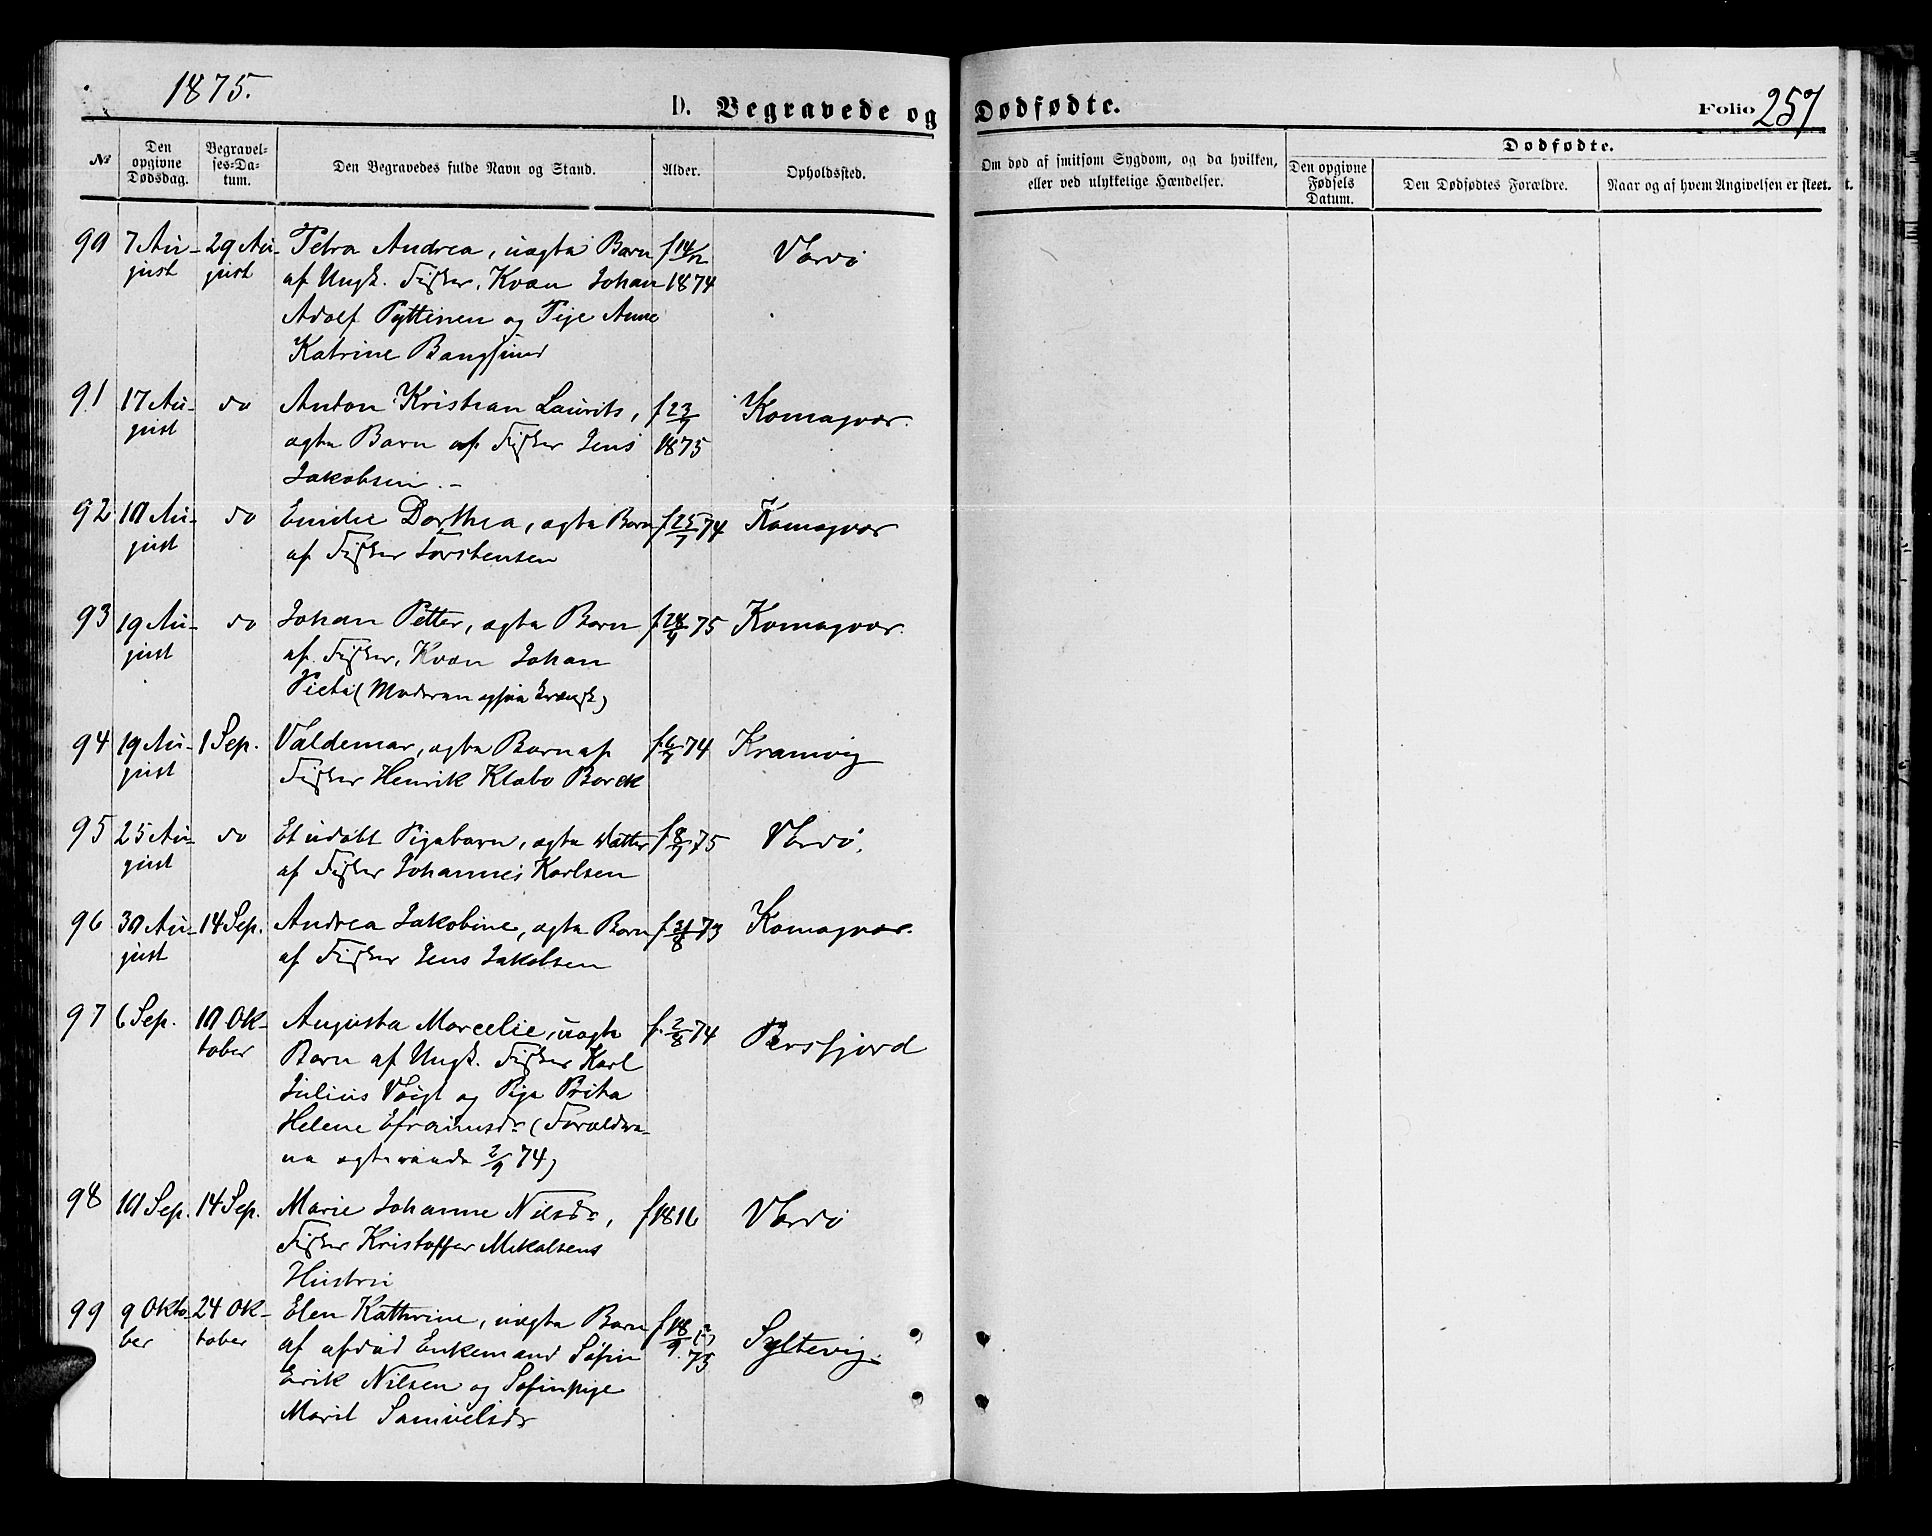 1875.
D. Begravede og Dødfødte.
Folio 257
№
Den opgivne Dødsdag.
Begravelses-Datum.
Den Begravedes fulde Navn og Stand.
Alder.
Opholdssted.
Om død af smitsom Sygdom, og da hvilken, eller ved ulykkelige Hændelser.
Dødfødte.
Den opgivne Fødsels Datum.
Den Dødfødtes Forældre.
Naar og af hvem Angivelsen er skeet.
90 7 Au- 29 Au- Petra Andrea, uægte Barn f 14/12 Vardø
gust gust af Ungk. Fisker, Kvæn Johan 1874
Adolf Pyttinen og Pige Anne
Katrine Bangsund
91 17 Au- do Anton Kristian Laurits, f 23/7 Komagvær.
gust ægte Barn af Fisker Jens 1875
Jakobsen. -
92 10 Au- do Emilie Dorthea, ægte Barn f 25/7 74 Komagvær
gust af Fisker Torstensen
93 19 Au- do Johan Petter, ægte Barn f 28/4 75 Komagvær.
gust af Fisker, Kvæn Johan
Pieti (Moderen ogsaa kvænsk)
94 19 Au- 1 Sep. Valdemar, ægte Barn af f 6/7 74 Kramvig
gust Fisker Henrik Klæbo Borck
95 25 Au- do Et udøbt Pigebarn, ægte Datter f 8/7 75 Vardø.
gust af Fisker Johannes Karlsen
96 30 Au- 14 Sep. Andrea Jakobine, ægte Barn f 31/8 73 Komagvær.
gust af Fisker Jens Jakobsen
97 6 Sep. 10 Ok- Augusta Marcelie, uægte f. 2/8 74 Persfjord
tober Barn af Ungk. Fisker Karl
Julius Voigt og Pige Brita
Helene Efraimsdr (Forældre-
ne ægteviede 2/9 74)
98 10 Sep. 14 Sep. Marie Johanne Nilsdr, f 1816 Vardø
Fisker Kristoffer Mikalsens
Hustru
99 9 Okto- 24 Ok- Elen Kathrine, uægte Barn f 18/9 (?) Syltevig.
ber tober af afdød Enkemand Søfin 75
Erik Nilsen og Søfinpige
Marit Samuelsdr